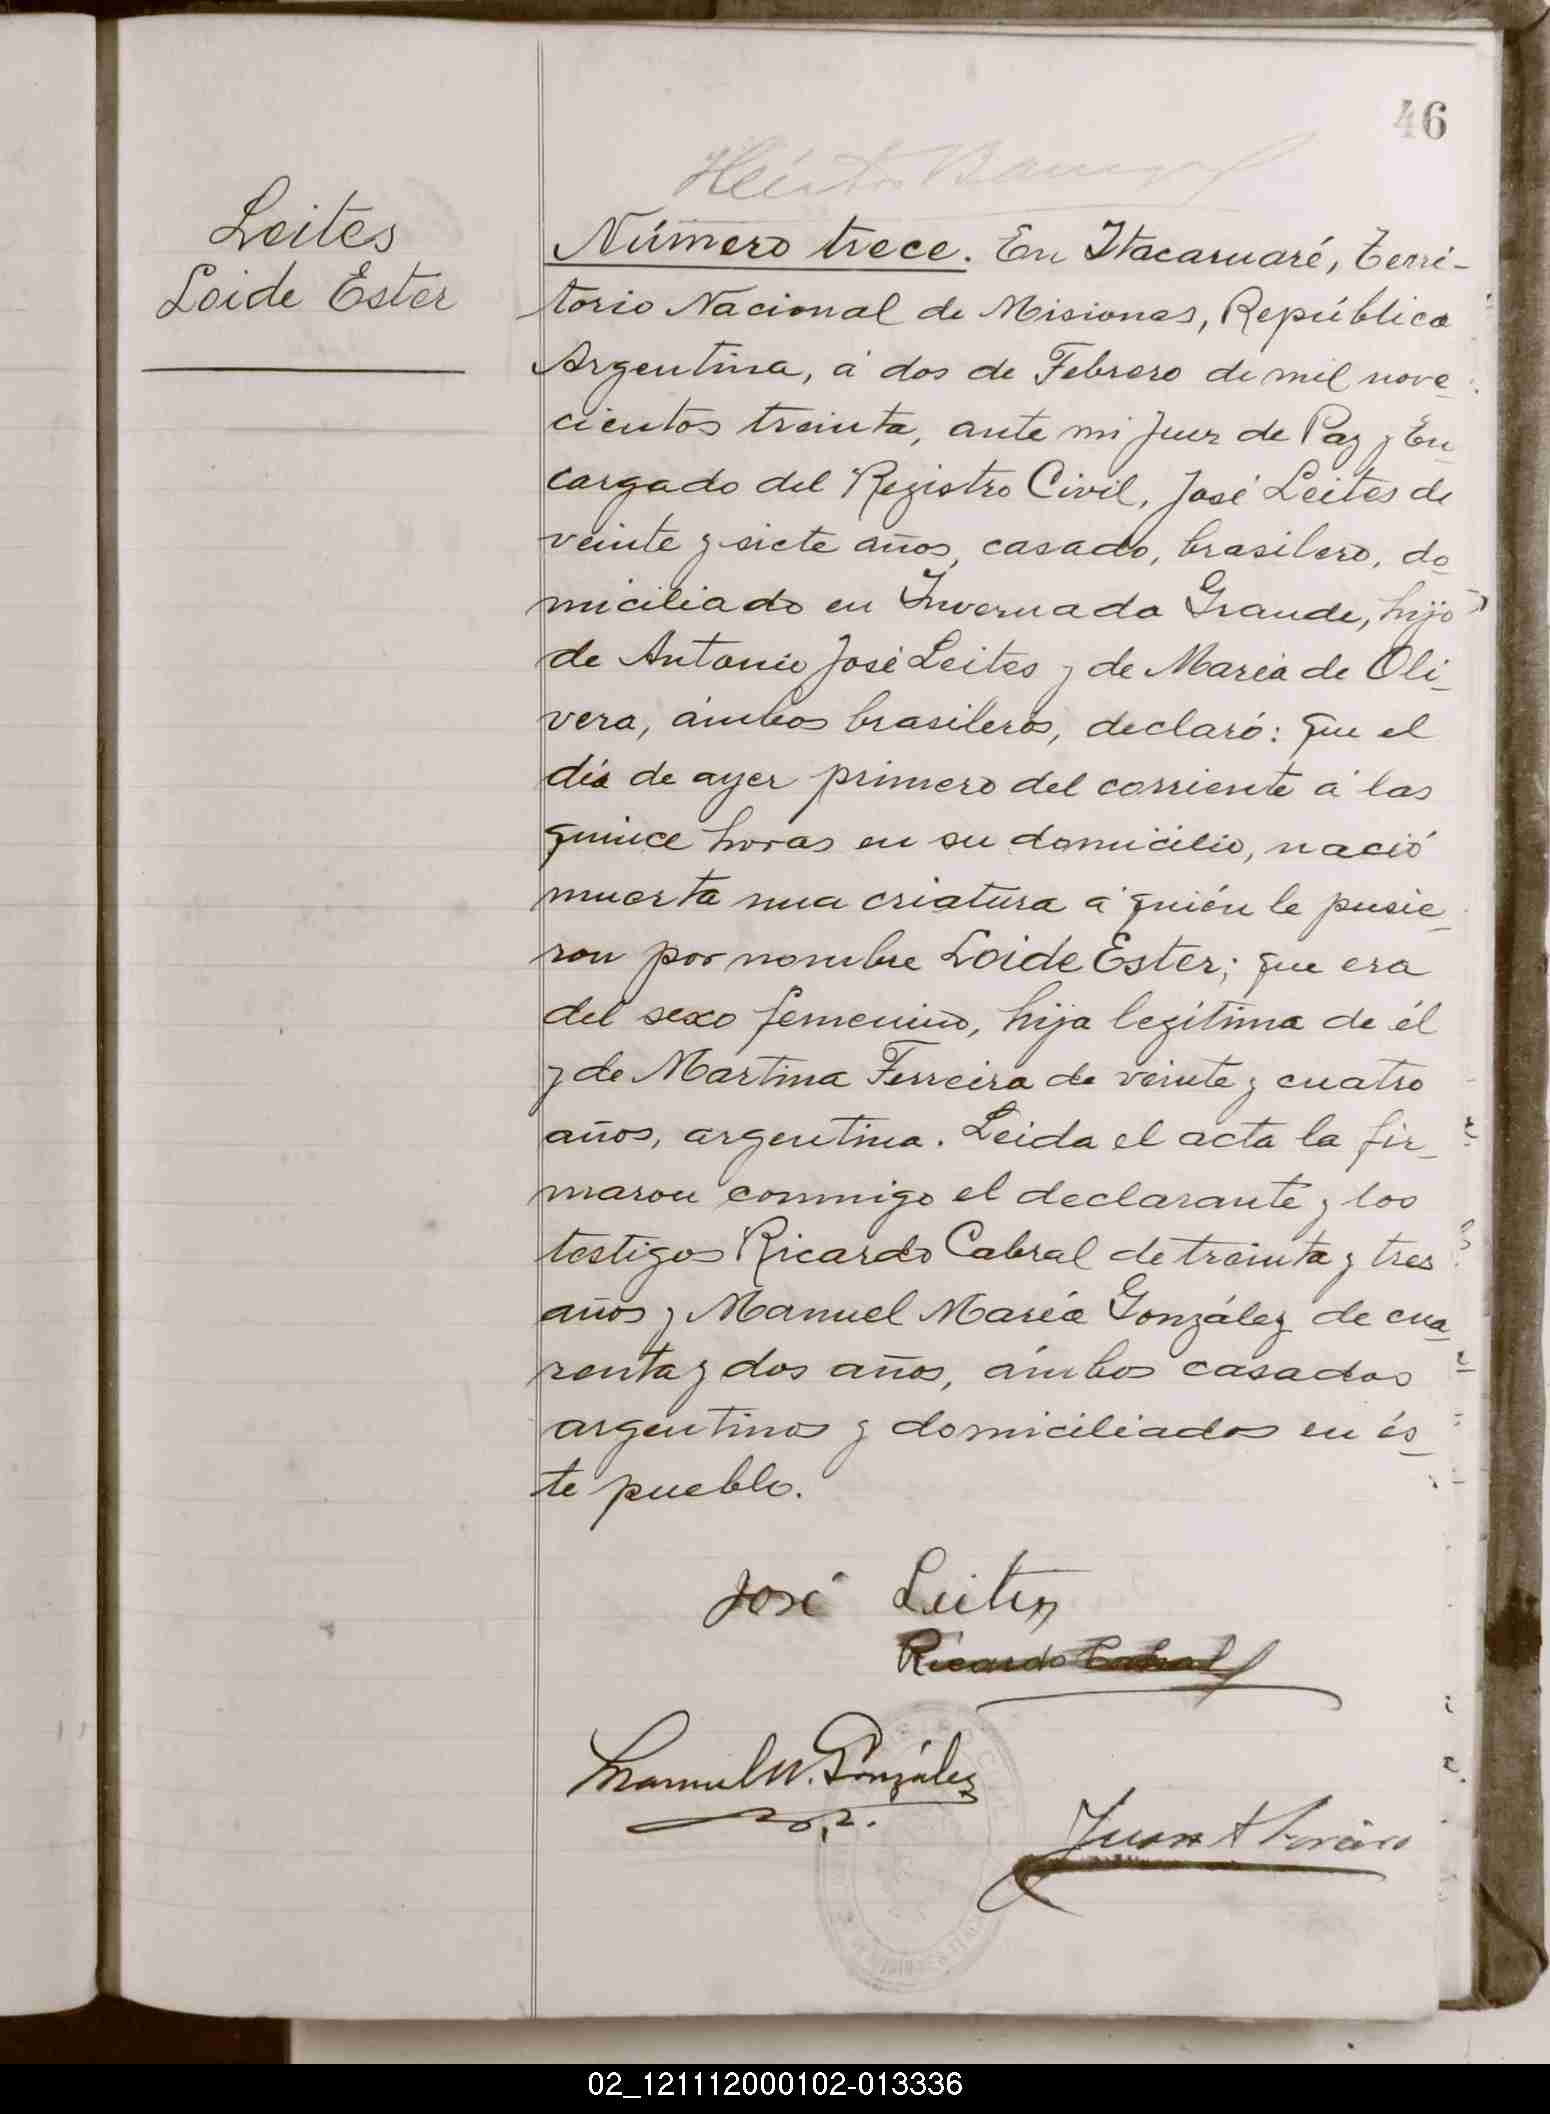 46
Leites
Loide Ester
Número trece. En Itacaruaré, Terri-
torio Nacional de Misiones, República
Argentina, á dos de Febrero de mil nove_
cientos treinta, ante mi Juez de Paz y En_
cargado del Registro Civil, José Leites de
veinte y siete años, casado, brasilero, do_
miciliado en Invernada Grande, hijo
de Antonio José Leites y de María de Oli_
vera, ámbos brasileros, declaró: que el
día de ayer primero del corriente á las
quince horas en su domicilio, nació
muerta una criatura á quién le pusie_
ron por nombre Loide Ester; que era
del sexo femenino, hija legítima de él
y de Martina Ferreira de veinte y cuatro
años, argentina. Leida el acta la fir_
maron conmigo el declarante y los
testigos Ricardo Cabral de treinta y tres
años y Manuel María González de cua_
renta y dos años, ámbos casados
argentinos y domiciliados en és_
te pueblo.
José Leites
Ricardo Cabral
Manuel M. González
Juan
02_121112000102-013336